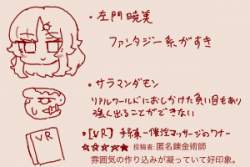 ・左門暁美
ファンタジー系がすき
・サラマンダモン
リアルワールドにおしかけた負い目もあり
強く出ることができない
・【VR】手練一催淫マッサージのワナー
VR
☆☆☆★★ 投稿者:匿名錬金術師
雰囲気の作り込みが凝っていて好印象。